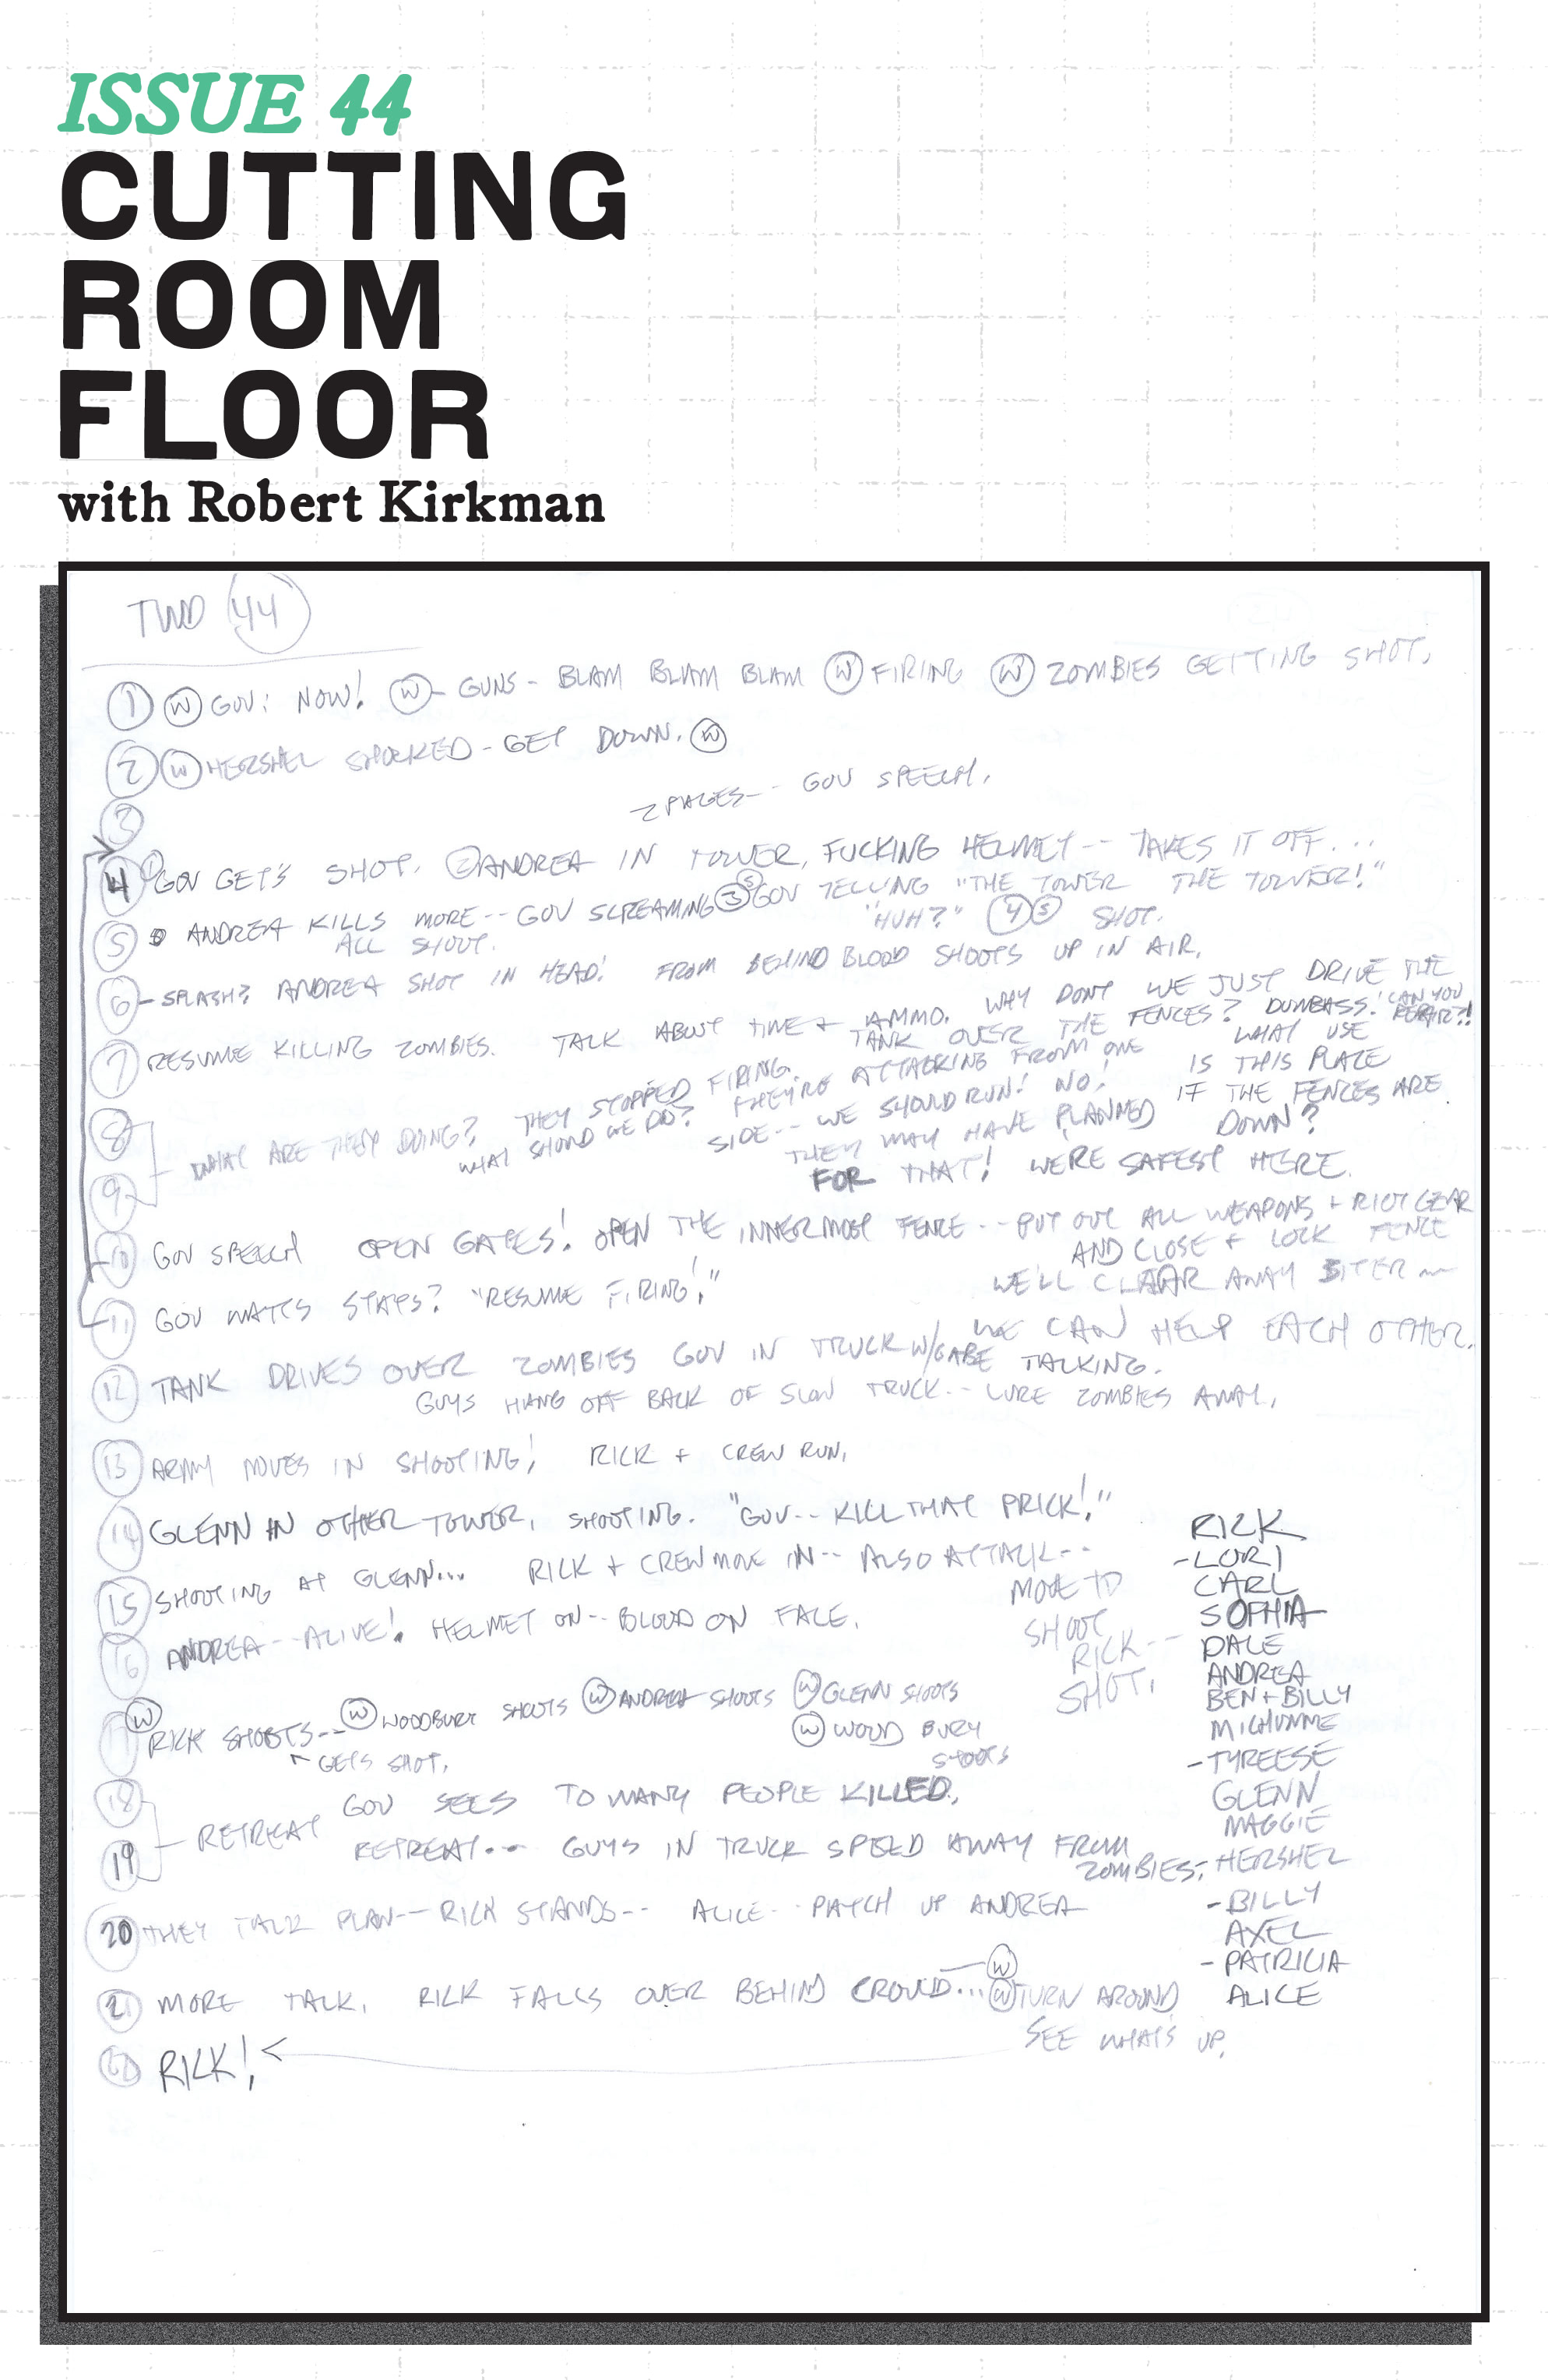 ISSUE 44
CUTTING
ROOM
FLOOR
with Robert Kirkman
TWD 44
1 W GOV: NOW! W - GUNS - BLAM BLAM BLAM W FIRING W ZOMBIES GETTING SHOT.
2 W HERSHEL SHOCKED - GET DOWN. W
3
2 PAGES -- GOV SPEECH.
4 1 GOV GETS SHOT. 2 ANDREA IN TOWER, FUCKING HELMET -- TAKES IT OFF...
5 ANDREA KILLS MORE -- GOV SCREAMING 3 S GOV TELLING "THE TOWER THE TOWER!"
ALL SHOOT. "HUH?" 4 S SHOT.
6 - SPLASH? ANDREA SHOT IN HEAD! FROM BEHIND BLOOD SHOOTS UP IN AIR.
7 RESUME KILLING ZOMBIES. TALK ABOUT TIME + AMMO. WHY DONT WE JUST DRIVE THE
TANK OVER THE FENCES? DUMBASS! CAN YOU
REPAIR?!
WHAT USE
IS THIS PLACE
IF THE FENCES ARE
DOWN?
8
9
WHAT ARE THEY DOING? THEY STOPPED FIRING.
WHAT SHOULD WE DO? THEY'RE ATTACKING FROM ONE
SIDE -- WE SHOULD RUN! NO!
THEY MAY HAVE PLANNED
FOR THAT! WE'RE SAFEST HERE.
10 GOV SPEECH OPEN GATES! OPEN THE INNERMOST FENCE -- PUT OUT ALL WEAPONS + RIOT GEAR
AND CLOSE + LOCK FENCE
WE'LL CLEAR AWAY BITER
11 GOV WAITS STAPS? "RESUME FIRING!"
WE CAN HELP EACH OTHER.
12 TANK DRIVES OVER ZOMBIES GOV IN TRUCK W/GABE TALKING.
GUYS HANG OFF BACK OF SLOW TRUCK -- LURE ZOMBIES AWAY.
13 ARMY MOVES IN SHOOTING! RICK + CREW RUN.
14 GLENN IN OTHER TOWER, SHOOTING. "GOV -- KILL THAT PRICK!"
15 SHOOTING AT GLENN... RICK + CREW MOVE IN -- ALSO ATTACK --
MOVE TO
SHOOT
RICK --
SHOT.
16 ANDREA -- ALIVE! HELMET ON -- BLOOD ON FACE.
17 W RICK SHOOTS -- W WOODBURY SHOOTS W ANDREA SHOOTS W GLENN SHOOTS
GETS SHOT.
W WOOD BURY
SHOOTS
18
19
RETREAT
GOV SEES TO MANY PEOPLE KILLED.
RETREAT... GUYS IN TRUCK SPEED AWAY FROM
ZOMBIES.
20 THEY TALK PLAN -- RICK STANDS -- ALICE -- PATCH UP ANDREA
21 MORE TALK. RICK FALLS OVER BEHIND CROWD... W
W TURN AROUND
SEE WHAT'S UP.
22 RICK!
RICK
-LORI
CARL
SOPHIA
DALE
ANDREA
BEN + BILLY
MICHONNE
-TYREESE
GLENN
MAGGIE
-HERSHEL
-BILLY
AXEL
-PATRICIA
ALICE